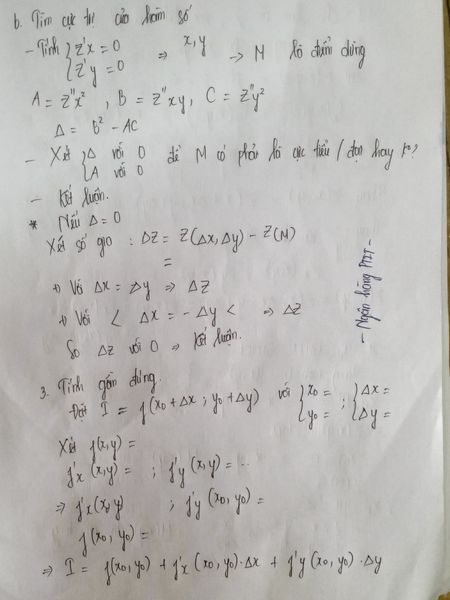 b. Tìm cực trị của hàm số
- Tính { z'x = 0 ⇒ x, y → M là điểm dừng
{ z'y = 0
A = z''x², B = z''xy, C = z''y²
Δ = b² - AC
- Xét { Δ với 0 để M có phải là cực tiểu / đại hay k°?
{ A với 0
- Kết luận.
* Nếu Δ = 0
Xét số gia : Δz = z(Δx, Δy) - z(M)
=
+) Với Δx = Δy ⇒ Δz
+) Với < Δx = -Δy < ⇒ Δz
So Δz với 0 ⇒ Kết luận.
- Ngân hàng PTIT -
3. Tính gần đúng
Đặt I = f(x0 + Δx ; y0 + Δy) với { x0 = ; { Δx =
{ y0 = { Δy =
Xét f(x,y) =
f'x (x,y) = ; f'y (x,y) = ...
⇒ f'x(x0,y0) ; f'y (x0, y0) =
f(x0, y0) =
⇒ I = f(x0, y0) + f'x (x0, y0) . Δx + f'y (x0, y0) . Δy